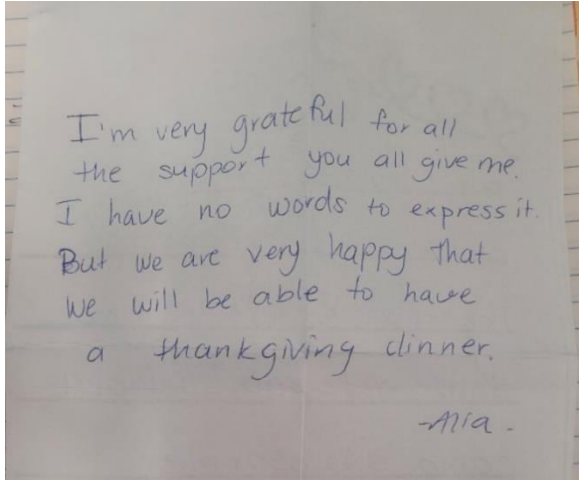 I'm very grateful for all
the support you all give me.
I have no words to express it.
But we are very happy that
we will be able to have
a thankgiving dinner.
-Alia.